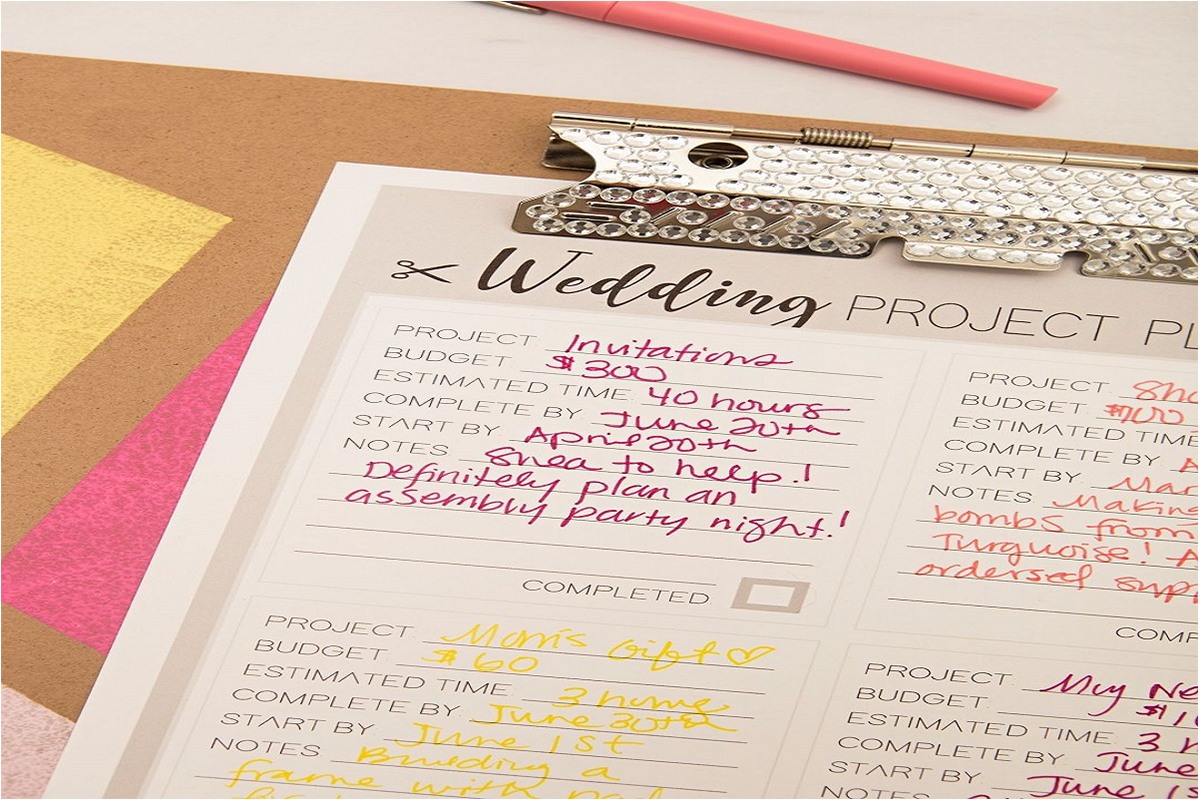 Wedding PROJECT PL
PROJECT Invitations
BUDGET $300
ESTIMATED TIME 40 hours
COMPLETE BY June 20th
START BY April 20th
NOTES Shea to help!
Definitely plan an
assembly party night!
COMPLETED
PROJECT
BUDGET
ESTIMATED TIME
COMPLETE BY
START BY Mar
NOTES Making
bombs from
Turquoise!
ordersed supp
COMP
PROJECT Mom's Gift
BUDGET $60
ESTIMATED TIME 3 hours
COMPLETE BY June 30th
START BY June 1st
NOTES Building a
frame with
PROJECT My Ne
BUDGET $1
ESTIMATED TIME 3
COMPLETE BY June
START BY June 1s
NOTES